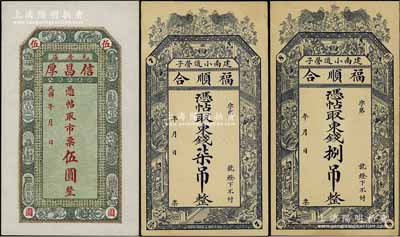 上海阳明拍卖
伍 伍
信昌厚
憑帖取市票伍圓整
民國 年 月 日
圓 圓
建南小道營子
福順合
憑帖取東錢柒吊整
字第
號燈下不付
年 月 日
票
建南小道營子
福順合
憑帖取東錢捌吊整
字第
號燈下不付
年 月 日
票